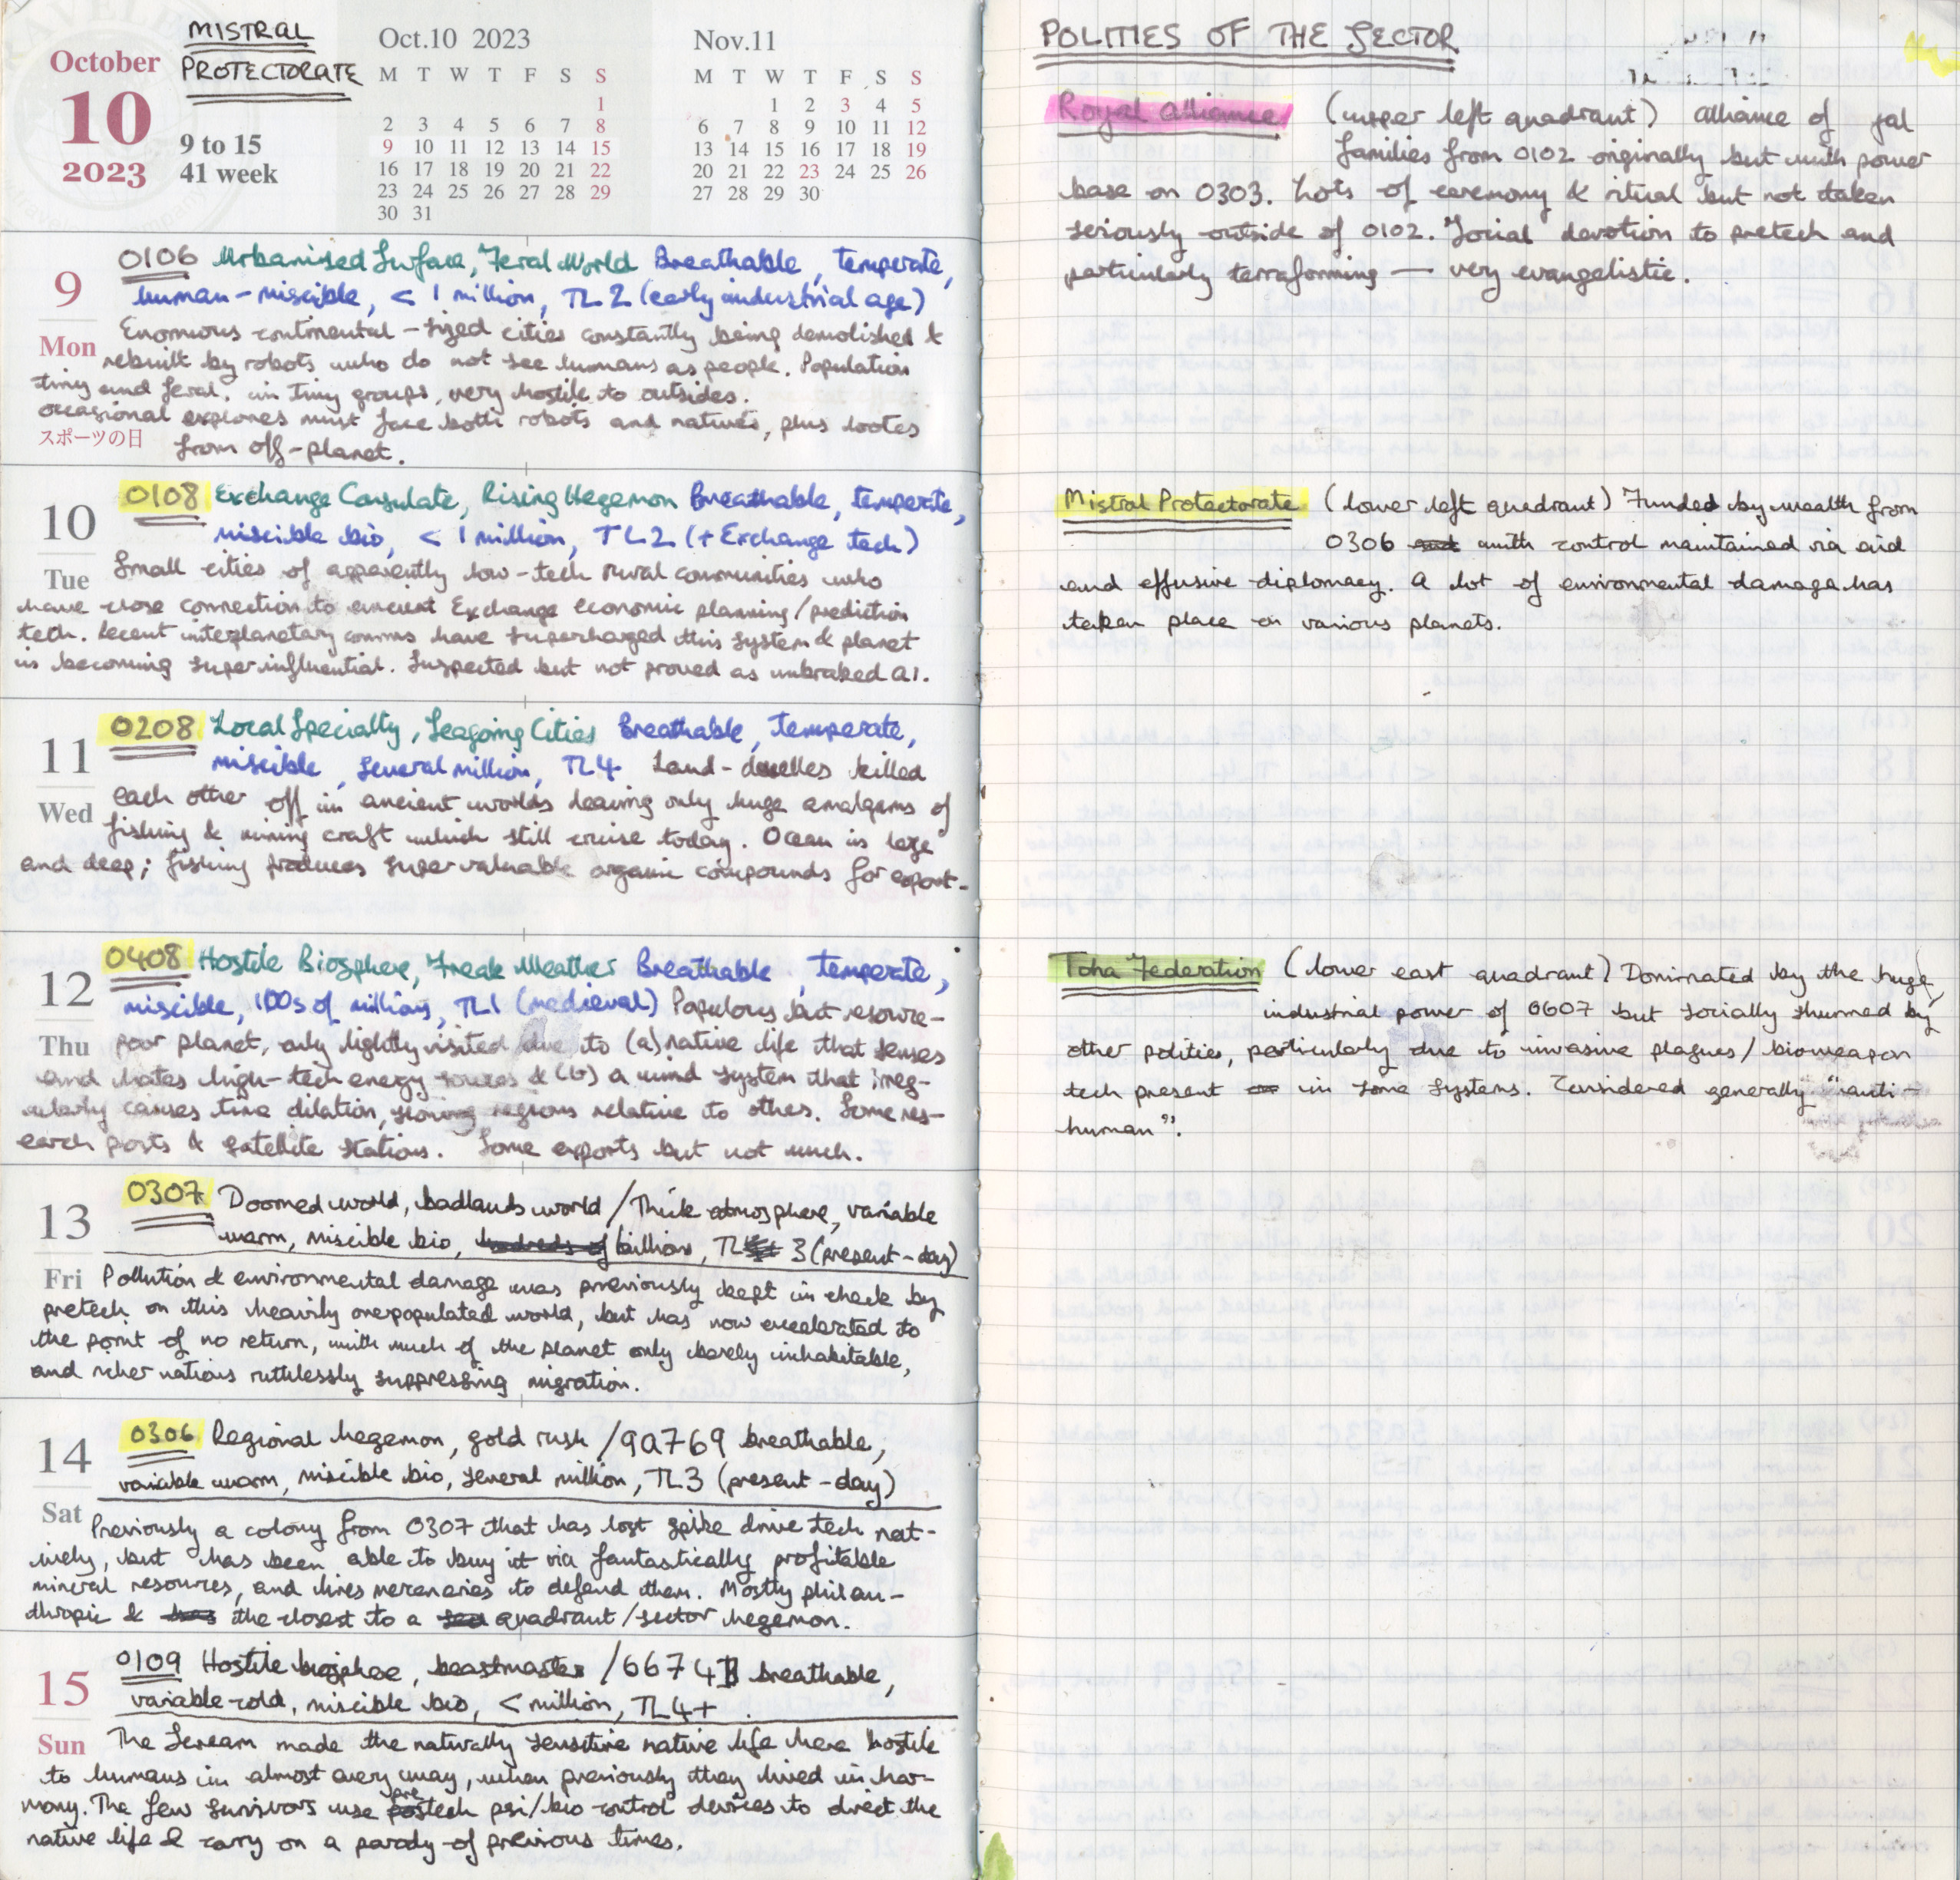 MISTRAL
PROTECTORATE
October
10
2023
9 to 15
41 week
Oct.10 2023
M T W T F S S
1
2 3 4 5 6 7 8
9 10 11 12 13 14 15
16 17 18 19 20 21 22
23 24 25 26 27 28 29
30 31
Nov.11
M T W T F S S
1 2 3 4 5
6 7 8 9 10 11 12
13 14 15 16 17 18 19
20 21 22 23 24 25 26
27 28 29 30
9
Mon
スポーツの日
0106 Urbanised Surface, Feral World Breathable, temperate,
human-miscible, < 1 million, TL2 (early industrial age)
Enormous continental-sized cities constantly being demolished &
rebuilt by robots who do not see humans as people. Population
tiny and feral, in tiny groups, very hostile to outsides.
occasional explores must face both robots and natives, plus lootes
from off-planet.
10
Tue
0108 Exchange Consulate, Rising Hegemon Breathable, temperate,
miscible bio, < 1 million, TL2 (+ Exchange tech)
Small cities of apparently low-tech rural communities who
have close connection to ancient Exchange economic planning/prediction
tech. Recent interplanetary comms have supercharged this system & planet
is becoming super influential. Suspected but not proved as unbraked AI.
11
Wed
0208 Local Specialty, Seagoing Cities Breathable, temperate,
miscible, several million, TL4 Land-dwelles killed
each other off in ancient worlds leaving only huge amalgams of
fishing & mining craft which still cruise today. Ocean is lage
and deep; fishing produces super valuable organic compounds for export.
12
Thu
0408 Hostile Biosphere, Freak Weather Breathable, temperate,
miscible, 100s of millions, TL1 (medieval) Populous but resource-
poor planet, only lightly visited due to (a) native life that senses
and hates high-tech energy sources & (b) a wind system that irreg-
ularly causes time dilation, slowing regions relative to others. Some res-
earch posts & satellite stations. Some exports but not much.
13
Fri
0307 Doomed world, badlands world / Thick atmosphere, variable
warm, miscible bio, hundreds of billions, TL 3 (present-day)
Pollution & environmental damage was previously kept in check by
pretech on this heavily overpopulated world, but has now excelerated to
the point of no return, with much of the planet only barely inhabitable,
and richer nations ruthlessly suppressing migration.
14
Sat
0306 Regional hegemon, gold rush / 9A769 breathable,
variable warm, miscible bio, several million, TL3 (present-day)
Previously a colony from 0307 that has lost spike drive tech nat-
ively, but has been able to buy it via fantastically profitable
mineral resources, and hires mercenaries to defend them. Mostly philan-
thropic & has the closest to a quadrant/sector hegemon.
15
Sun
0109 Hostile biosphee, beastmaster / 6674B breathable,
variable-cold, miscible bio, < million, TL4+
The Scream made the naturally sensitive native life here hostile
to humans in almost every way, when previously they lived in har-
mony. The few survivors use pretech psi/bio control devices to direct the
native life & carry on a parody of previous times.
POLITIES OF THE SECTOR
Royal Alliance (upper left quadrant) Alliance of
families from 0102 originally but with power
base on 0303. Lots of ceremony & ritual but not taken
seriously outside of 0102. Social devotion to pretech and
particularly terraforming — very evangelistic.
Mistral Protectorate (lower left quadrant) Funded by wealth from
0306 and with control maintained via aid
and effusive diplomacy. A lot of environmental damage has
taken place on various planets.
Toha Federation (lower east quadrant) Dominated by the huge
industrial power of 0607 but socially shunned by
other polities, particularly due to invasive plagues / bioweapon
tech present on in some systems. Considered generally "anti-
human".